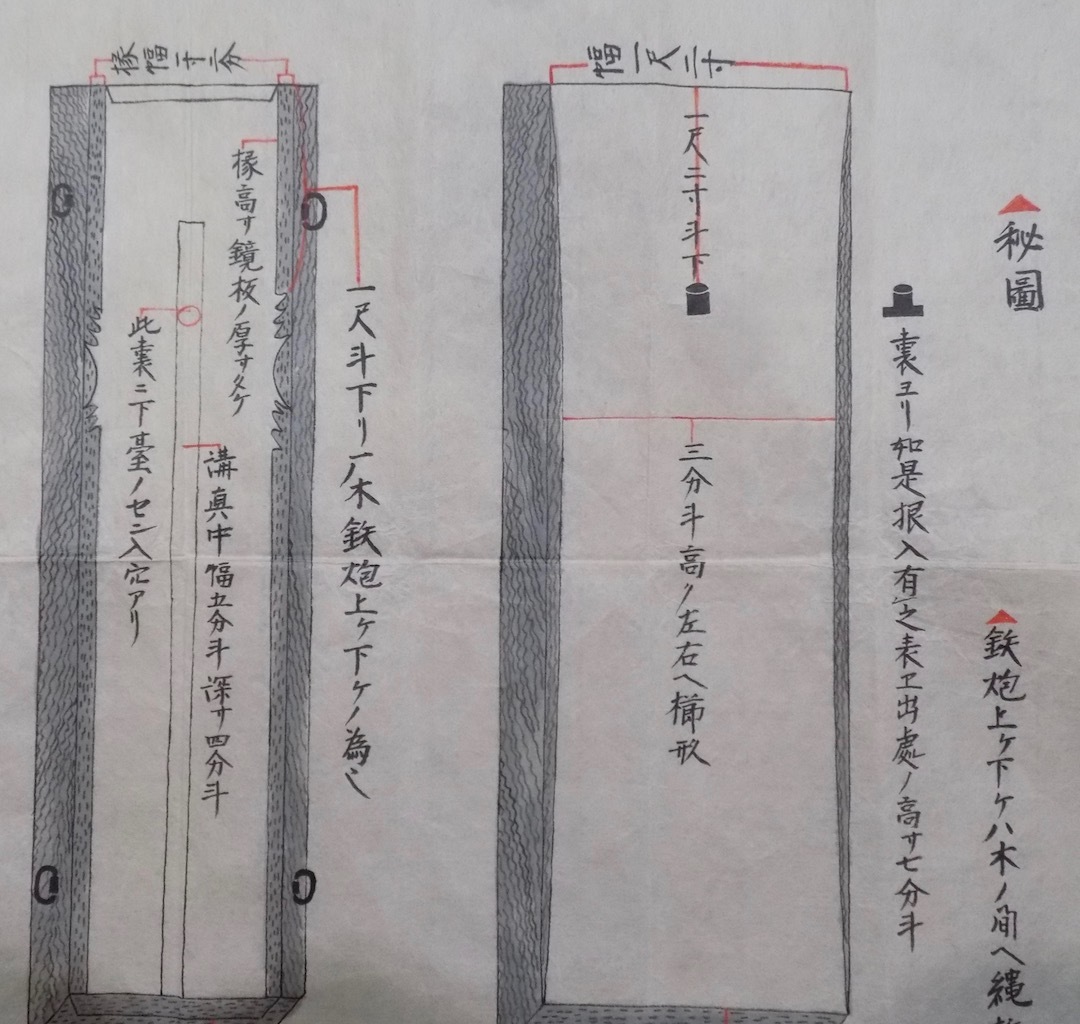 秘圖
鉄炮上ケ下ケハ木ノ間ヘ縄
裏ヨリ如是根入有之表エ出處ノ高サ七分斗
幅一尺二寸
一尺二寸斗下
三分斗高ク左右ヘ櫛形
一尺斗下リ一ノ木鉄炮上ケ下ケノ為
椽幅一寸二分
椽高サ鏡板ノ厚サタケ
溝真中幅五分斗深サ四分斗
此裏ニ下臺ノセン入穴アリ